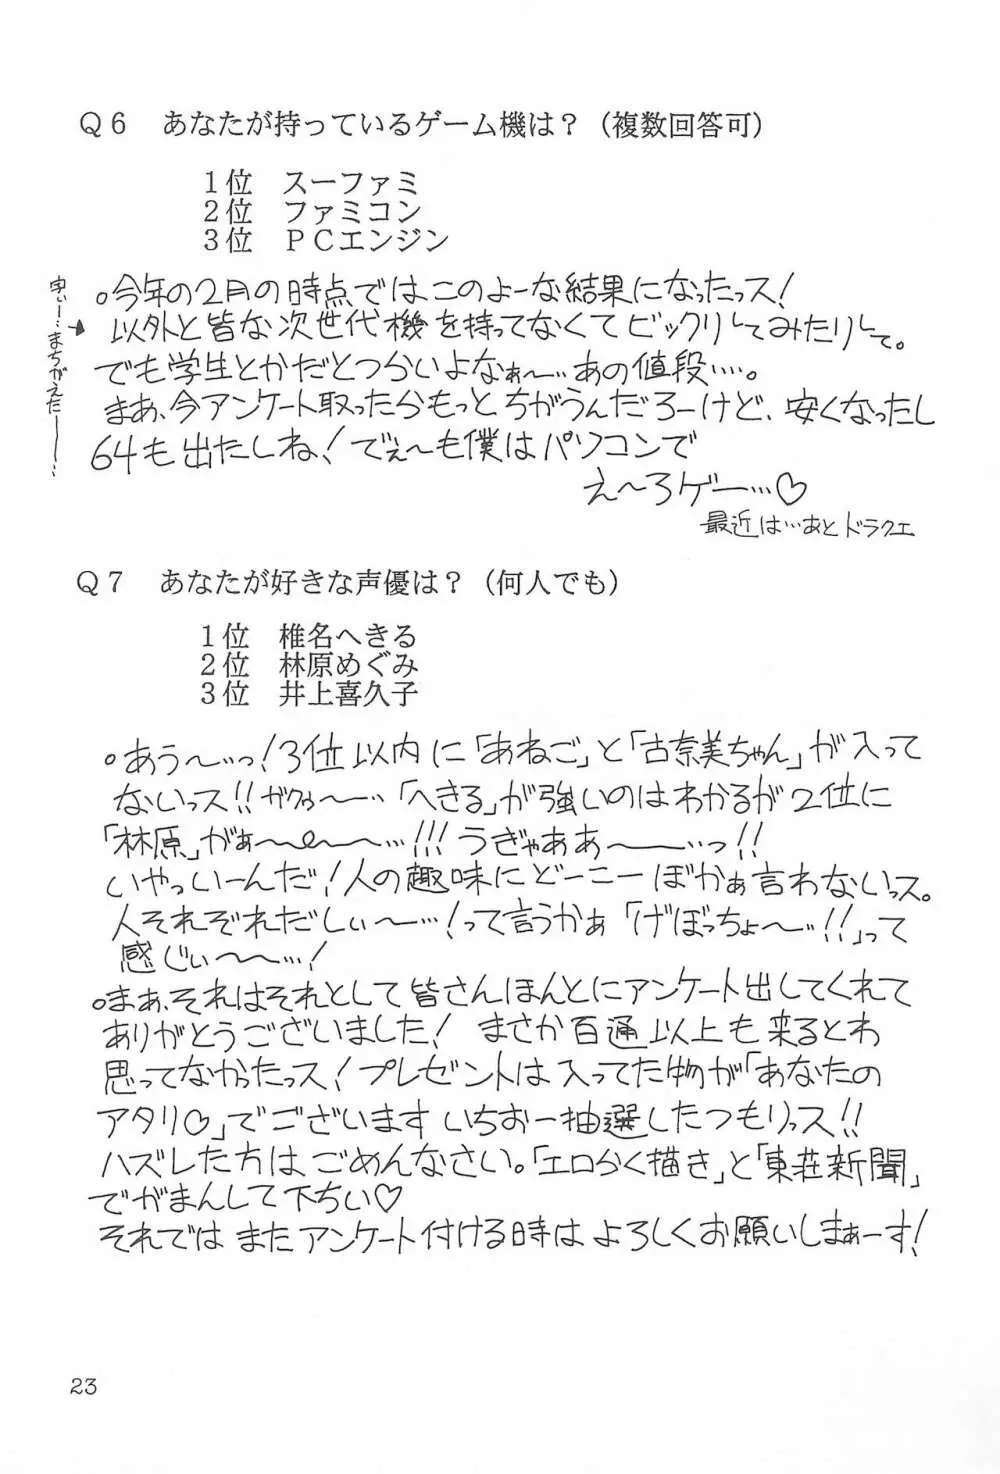 Q6　あなたが持っているゲーム機は？（複数回答可）
1位　スーファミ
2位　ファミコン
3位　PCエンジン
。今年の2月の時点ではこのよーな結果になったっス！
字ぃー…まちがえたー——…
以外と皆な次世代機を持ってなくてビックリしてみたりして。
でも学生とかだとつらいよなぁ〜…あの値段…。
まあ、今アンケート取ったらもっとちがうんだろーけど、安くなったし
64も出たしね！でぇ〜も僕はパソコンで
え〜ろゲー…♡
最近は…あとドラクエ
Q7　あなたが好きな声優は？（何人でも）
1位　椎名へきる
2位　林原めぐみ
3位　井上喜久子
。あう〜…っ！3位以内に「あねご」と「古奈美ちゃん」が入って
ないっス!!ガクゥ〜…「へきる」が強いのはわかるが2位に
「林原」がぁ〜〜〜…!!!うぎゃああ〜…っ!!
いやっいーんだ！人の趣味にどーこーぼかぁ言わないっス。
人それぞれだしぃ〜…！って言うかぁ「げぼっちょ〜…!!」って
感じぃ〜〜…！
。まあ、それはそれとして皆さんほんとにアンケート出してくれて
ありがとうございました！まさか百通以上も来るとわ
思ってなかったっス！プレゼントは入ってた物が「あなたの
アタリ♡」でございますいちおー抽選したつもりっス!!
ハズレた方はごめんなさい。「エロらく描き」と「東荘新聞」
でがまんして下ちい♡
それではまたアンケート付ける時はよろしくお願いしまぁーす！
23